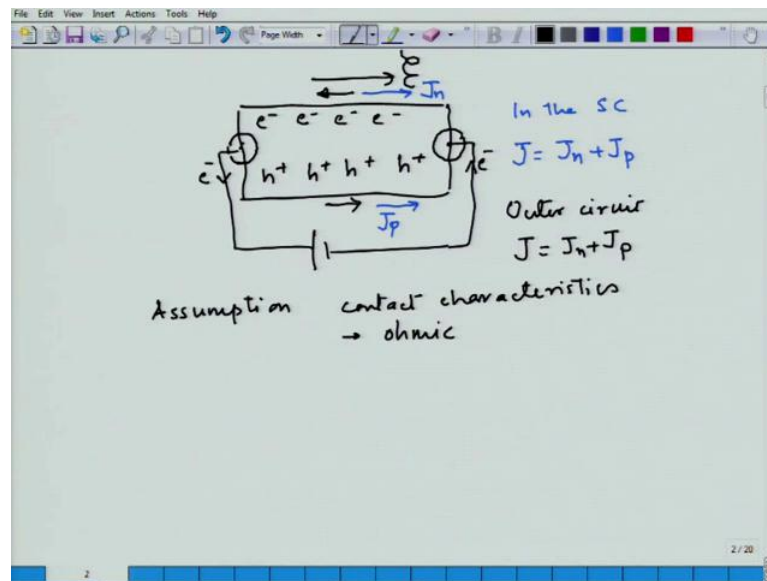 File Edit View Insert Actions Tools Help
Page Width
B I
ξ
Jn
e⁻ e⁻ e⁻ e⁻
h⁺ h⁺ h⁺ h⁺
e⁻
e⁻
Jp
In the SC
J = Jn + Jp
Outer ciruit
J = Jn + Jp
Assumption contact characteristics
→ ohmic
2 / 20
2